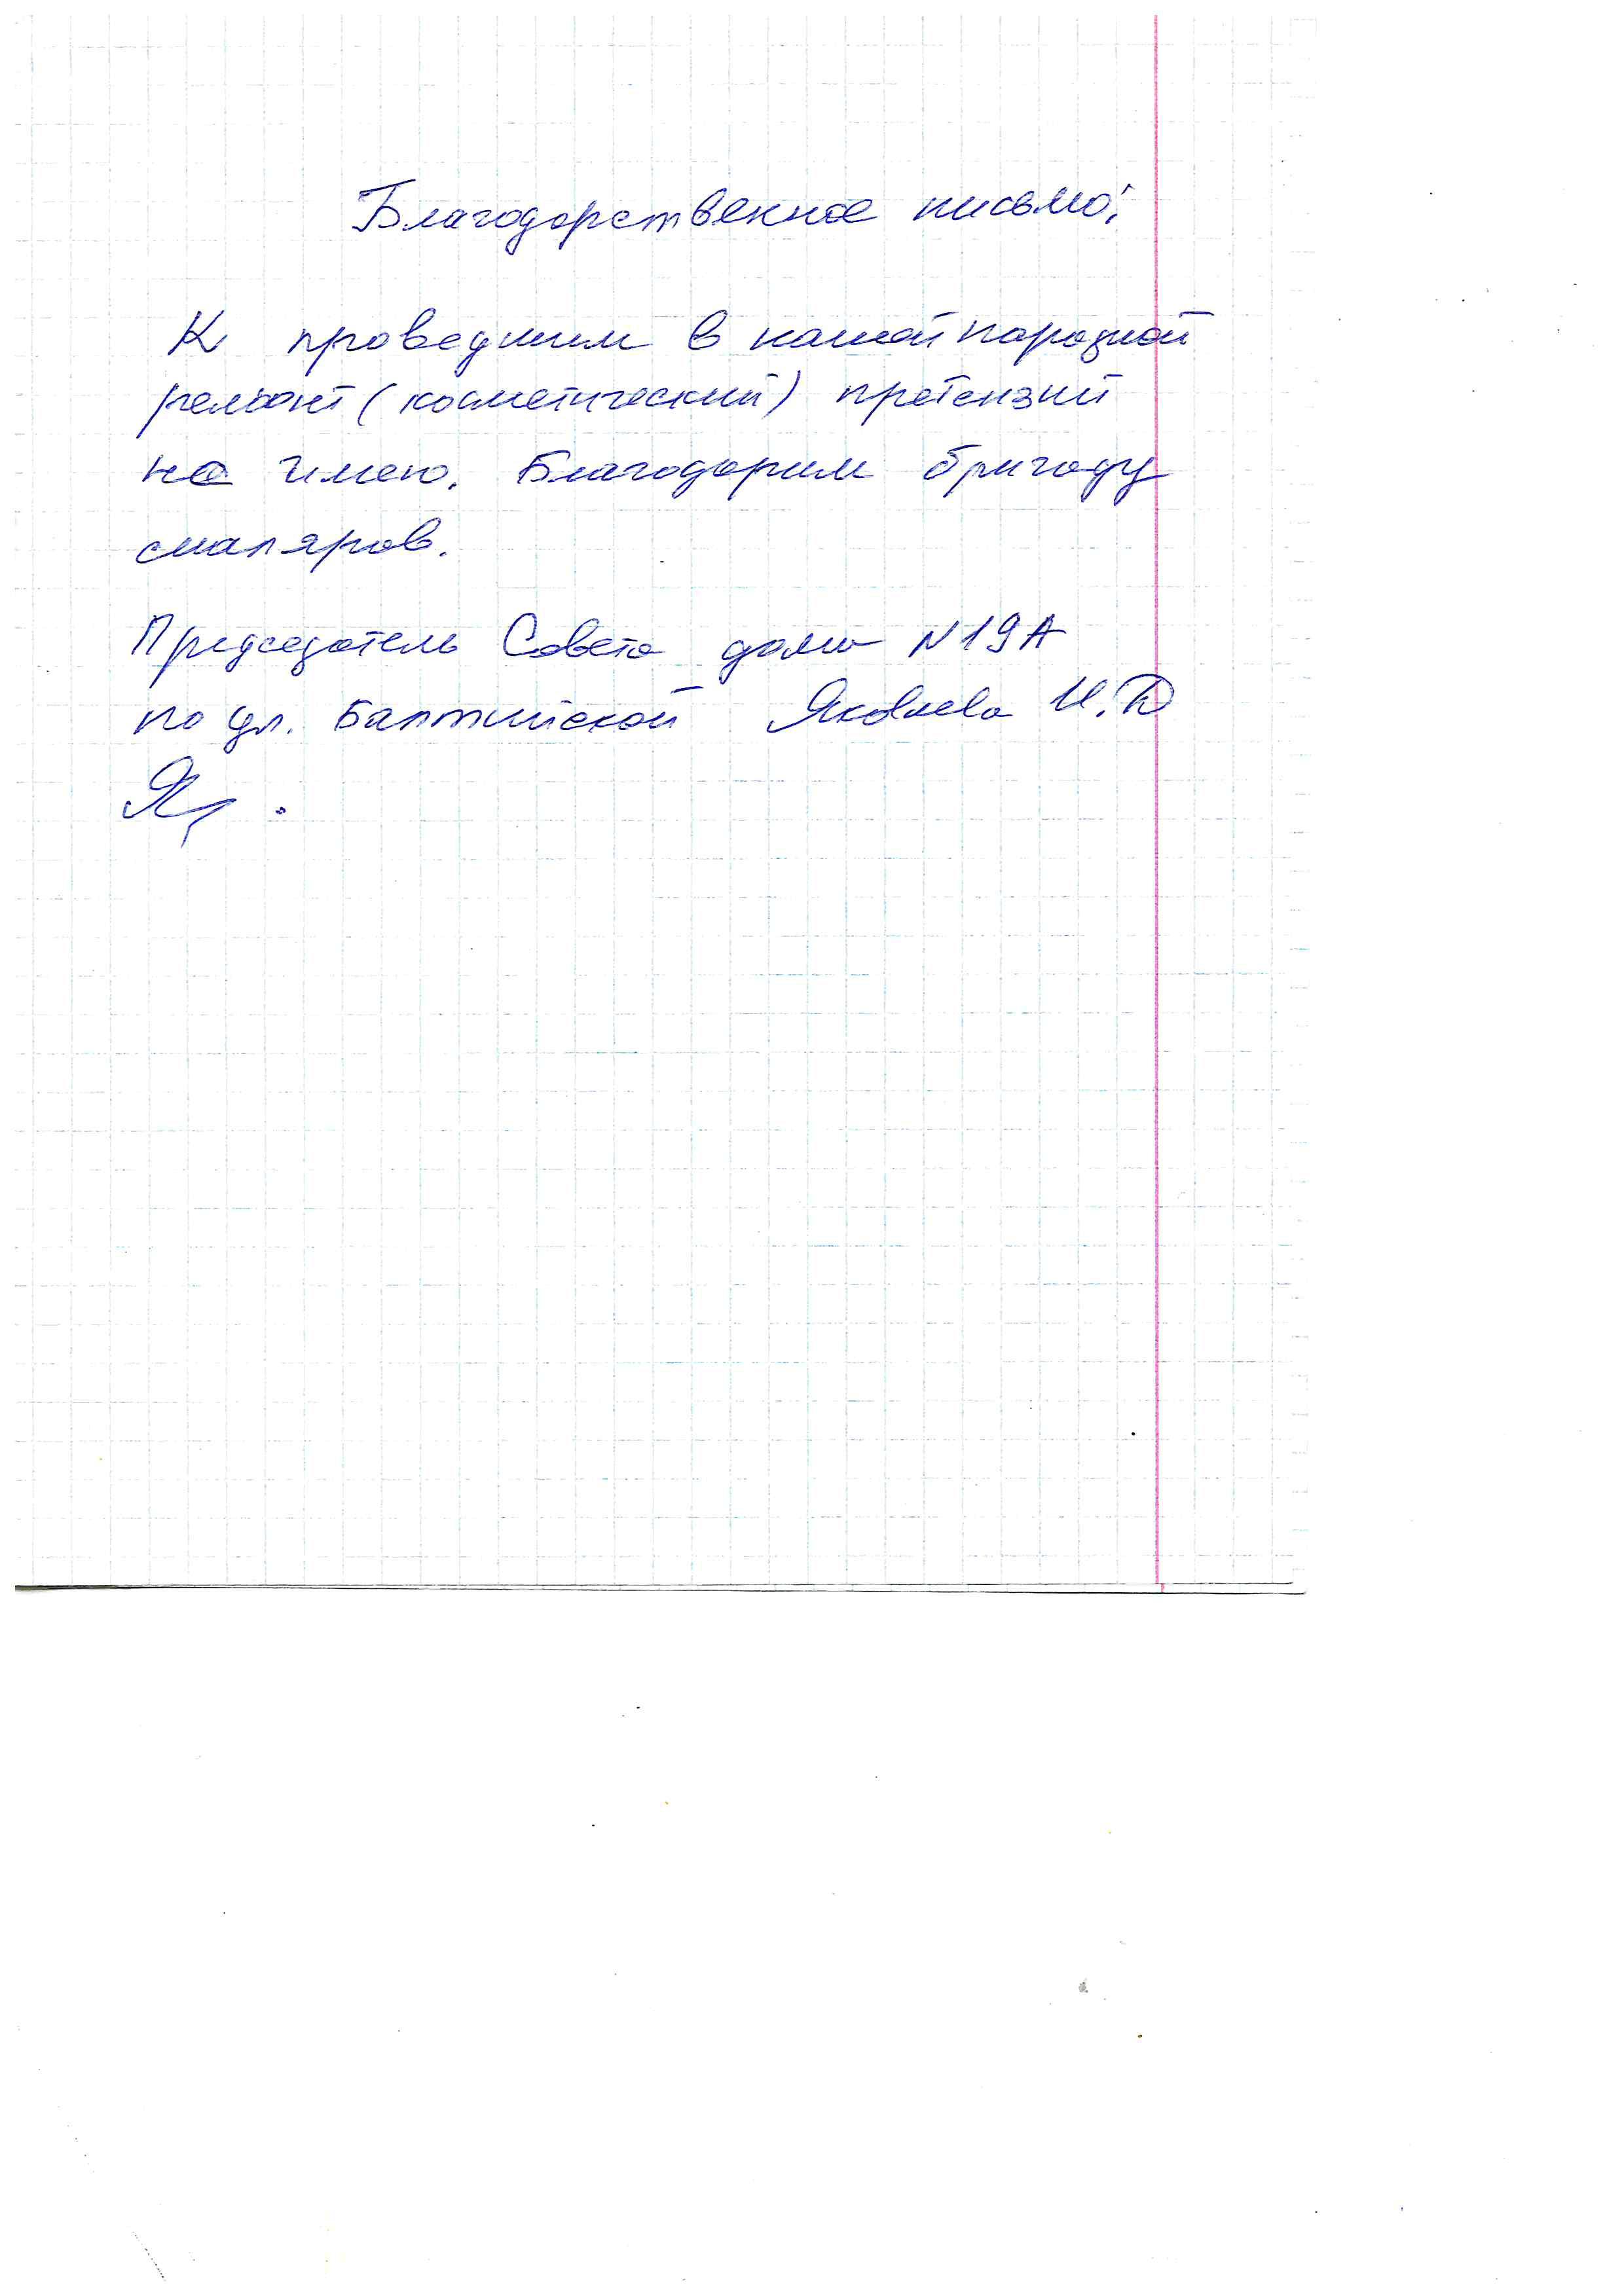 Благодарственное письмо:
К проведшим в нашей парадной
ремонт (косметический) претензий
не имею. Благодарим бригаду
смаляров.
Председатель Совета дома N19А
по ул. Балтийской Яковлева И.Б